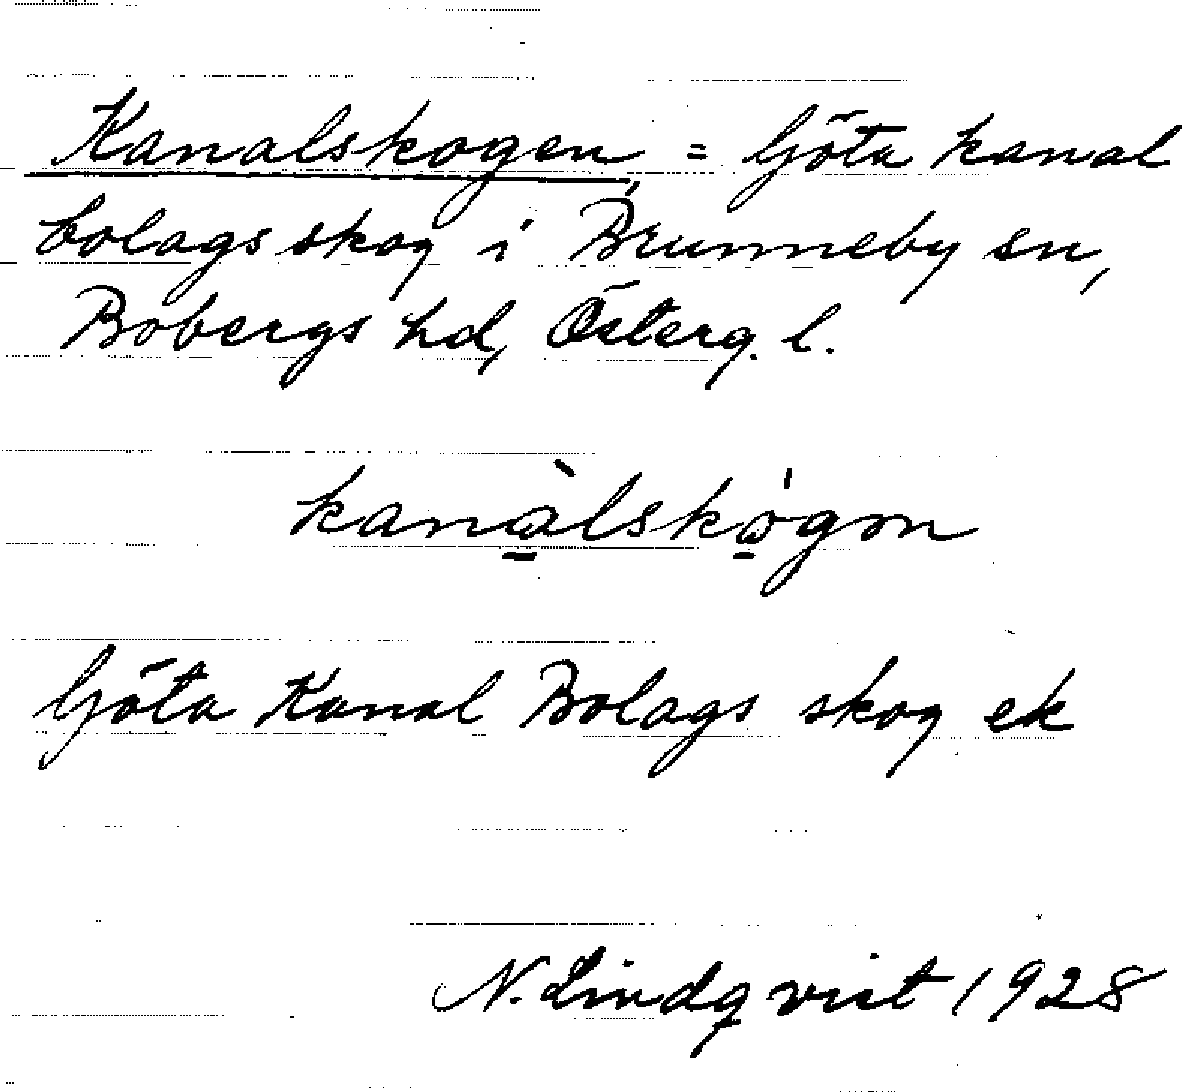 Kanalskogen = Göta kanal
bolags skog i Brunneby sn,
Bobergs hd, Österg. l.
kanà̱lsko̱̍gon
Göta Kanal Bolags skog ek
N. Lindqvist 1928